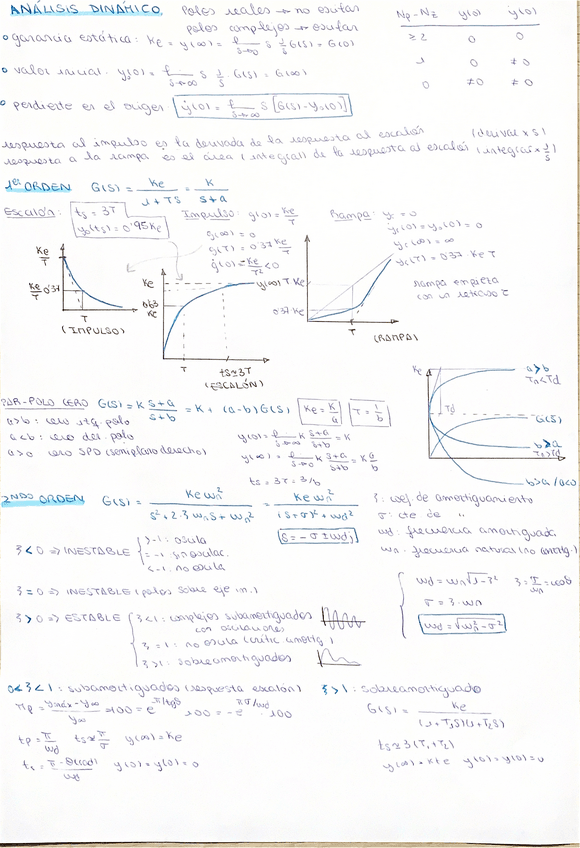 ANÁLISIS DINÁMICO
Polos reales → no oscilar
polos complejos → oscilar
Np-Nz y(0) ẏ(0)
≥2 0 0
1 0 ≠0
0 ≠0 ≠0
• ganancia estática: Ke = y(∞) = lim s→0 s 1/s G(s) = G(0)
• valor inicial: y(0) = lim s→∞ s 1/s · G(s) = G(∞)
• pendiente en el origen ẏ(0) = lim s→∞ s [G(s) - y(0)]
respuesta al impulso es la derivada de la respuesta al escalón (derivar × s)
respuesta a la rampa es el área (integral) de la respuesta al escalón (integrar × 1/s)
1er ORDEN G(s) = Ke/(1+Ts) = K/(s+a)
Escalón: ts = 3T
y(ts) = 0'95Ke
Impulso: g(0) = Ke/T
g(∞) = 0
g(T) = 0'37 Ke/T
ġ(0) = -Ke/T² < 0
Rampa: yr = 0
ẏr(0) = y(0) = 0
yr(∞) = ∞
yr(T) = 0'37 Ke T
rampa empieza
con un retraso T
Ke/T
Ke/T 0'37
T
(IMPULSO)
Ke
0'63
Ke
y(∞)
T
ts≃3T
(ESCALÓN)
T Ke
0'37 Ke
T
(RAMPA)
Ke
a>b
Tn<Td
Td
G(s)
b>a
Tn>Td
b>a/a<0
PAR-POLO CERO G(s) = K (s+a)/(s+b) = K + (a-b)G(s) Ke = K/a T = 1/b
a>b: cero izq. polo
a<b: cero der. polo
a>0 cero SPD (semiplano derecho)
y(0) = lim s→∞ K (s+a)/(s+b) = K
y(∞) = lim s→0 K (s+a)/(s+b) = K a/b
ts = 3T = 3/b
2NDO ORDEN G(s) = Ke wn²/(s²+2·ξ wn s + wn²) = Ke wn²/((s+σ)²+wd²)
s = -σ ± wdj
ξ: coef. de amortiguamiento
σ: cte de "
wd: frecuencia amortiguada
wn: frecuencia natural (no amortig.)
ξ<0 ⇒ INESTABLE
>-1: oscila
=-1 no oscilac.
<-1 no oscila
ξ=0 ⇒ INESTABLE (polos sobre eje im.)
ξ>0 ⇒ ESTABLE
ξ<1: complejos subamortiguados
con oscilaciones
ξ=1: no oscila (crític amortig)
ξ>1: sobreamortiguados
wd = wn√1-ξ² ξ = σ/wn = cosθ
σ = ξ·wn
wd = √wn²-σ²
0<ξ<1: subamortiguados (respuesta escalón)
Mp = (ymax-y∞)/y∞ · 100 = e^-π/tgθ · 100 = e^-πσ/wd · 100
tp = π/wd ts ≃ π/σ y(∞) = Ke
ts = (π-θ(rad))/wd y(0) = ẏ(0) = 0
ξ>1: sobreamortiguado
G(s) = Ke/((1+T1s)(1+T2s))
ts≃3(T1+T2)
y(∞) = Kte y(0) = ẏ(0) = 0